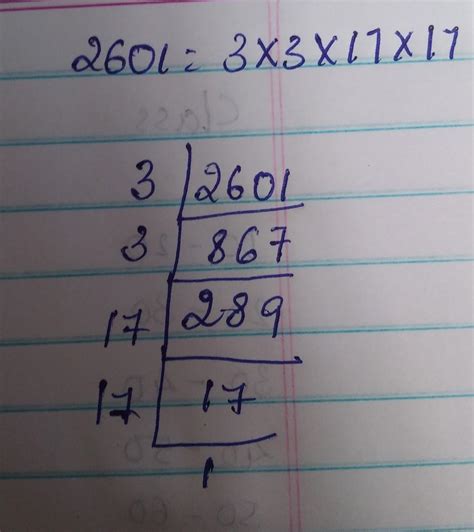 2601 = 3×3×17×17
Class
3 2601
3 867
17 289
17 17
1